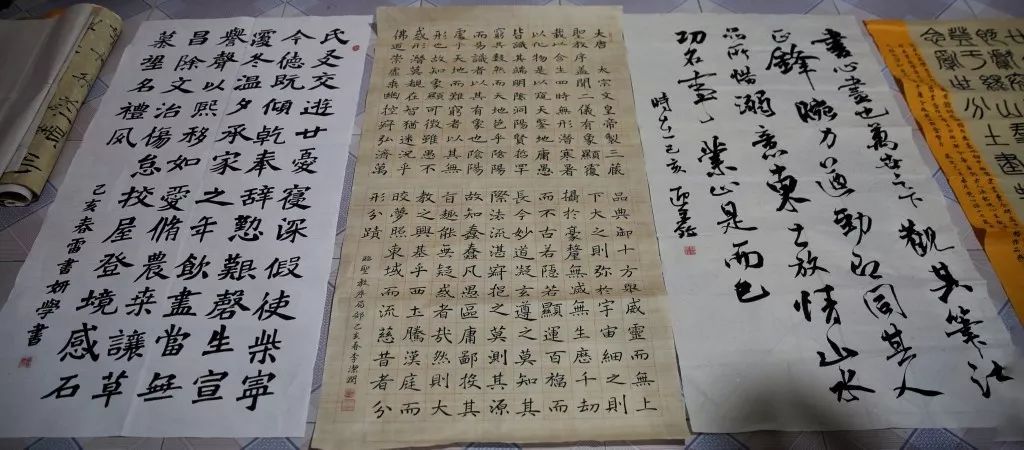 氏爻交逰廿憂寑深假使柴寧
今德既傾乾奉辭懃艱罄生宣
優冬温夕承家之年飲盡當無
譽聲以熙移如愛脩農桒讓草
昌除文治傷怠校屋登境感石
墓壆名禮風
己亥春雷書妍學書
大唐 太宗文皇帝製三藏
聖教序蓋聞二儀有象顯覆
載以含生四時無形潛寒暑
以化物是以窺天鑒地庸愚
皆識其端明陰洞陽賢哲罕
窮其數然而天地苞乎陰陽
而易識者以其有象也陰陽
處乎天地而難窮者以其無
形也故知象顯可徵雖愚不
惑形潛莫覩在智猶迷況乎
佛道崇虛乘幽控寂弘濟萬
品典御十方舉威靈而無上
下大之則弥於宇宙細之則
攝於豪釐無滅無生歷千劫
而不古若隱若顯運百福而
長今妙道凝玄遵之莫知其
際法流湛寂挹之莫測其源
故知蠢蠢凡愚區庸鄙投其
旨趣能無疑惑者哉然則大
教之興基乎西土騰漢庭而
皎夢照東域而流慈昔者分
形分蹟
臨聖教序局部己亥春李潔潤
書心畫也萬世之下觀其筆法
正鋒腕力遒勁即同其人
品所惜溺意東土放情山水
功名業止是而已
時在己亥